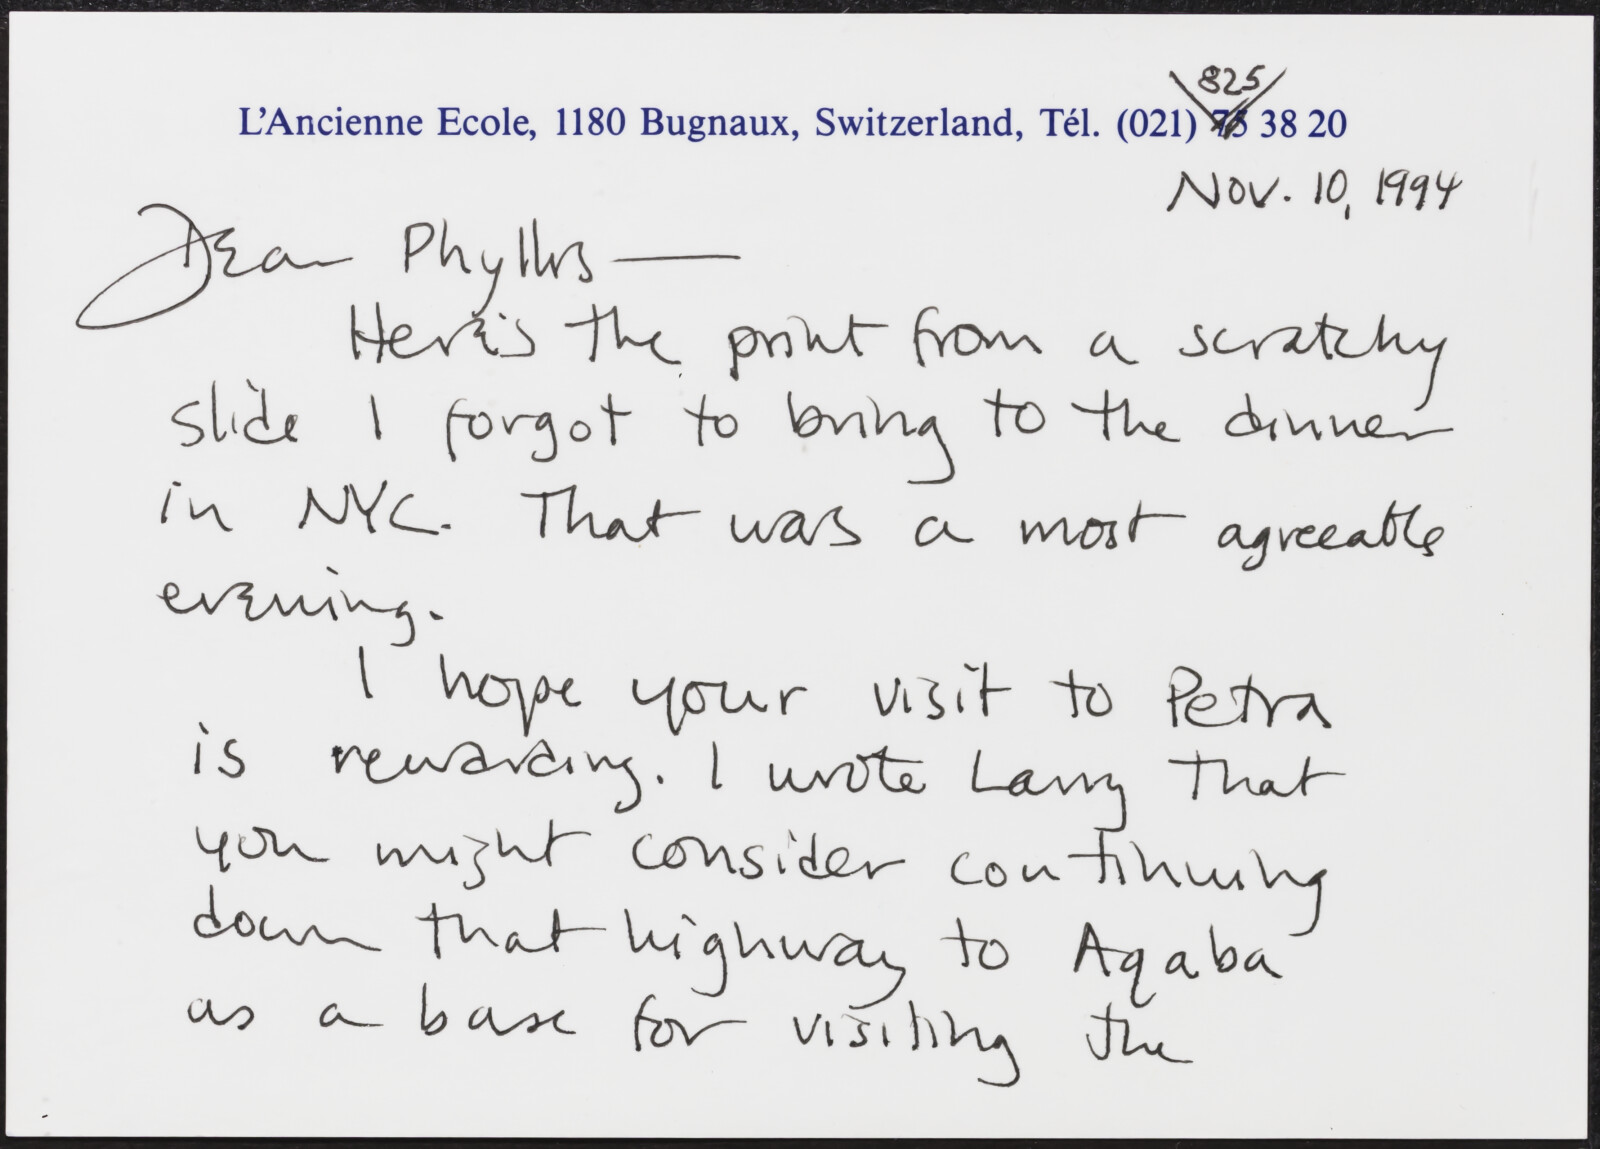 825
L'Ancienne Ecole, 1180 Bugnaux, Switzerland, Tél. (021) 75 38 20
Nov. 10, 1994
Dear Phyllis —
Here's the print from a scratchy
slide I forgot to bring to the dinner
in NYC. That was a most agreeable
evening.
I hope your visit to Petra
is rewarding. I wrote Larry that
you might consider continuing
down that highway to Aqaba
as a base for visiting the